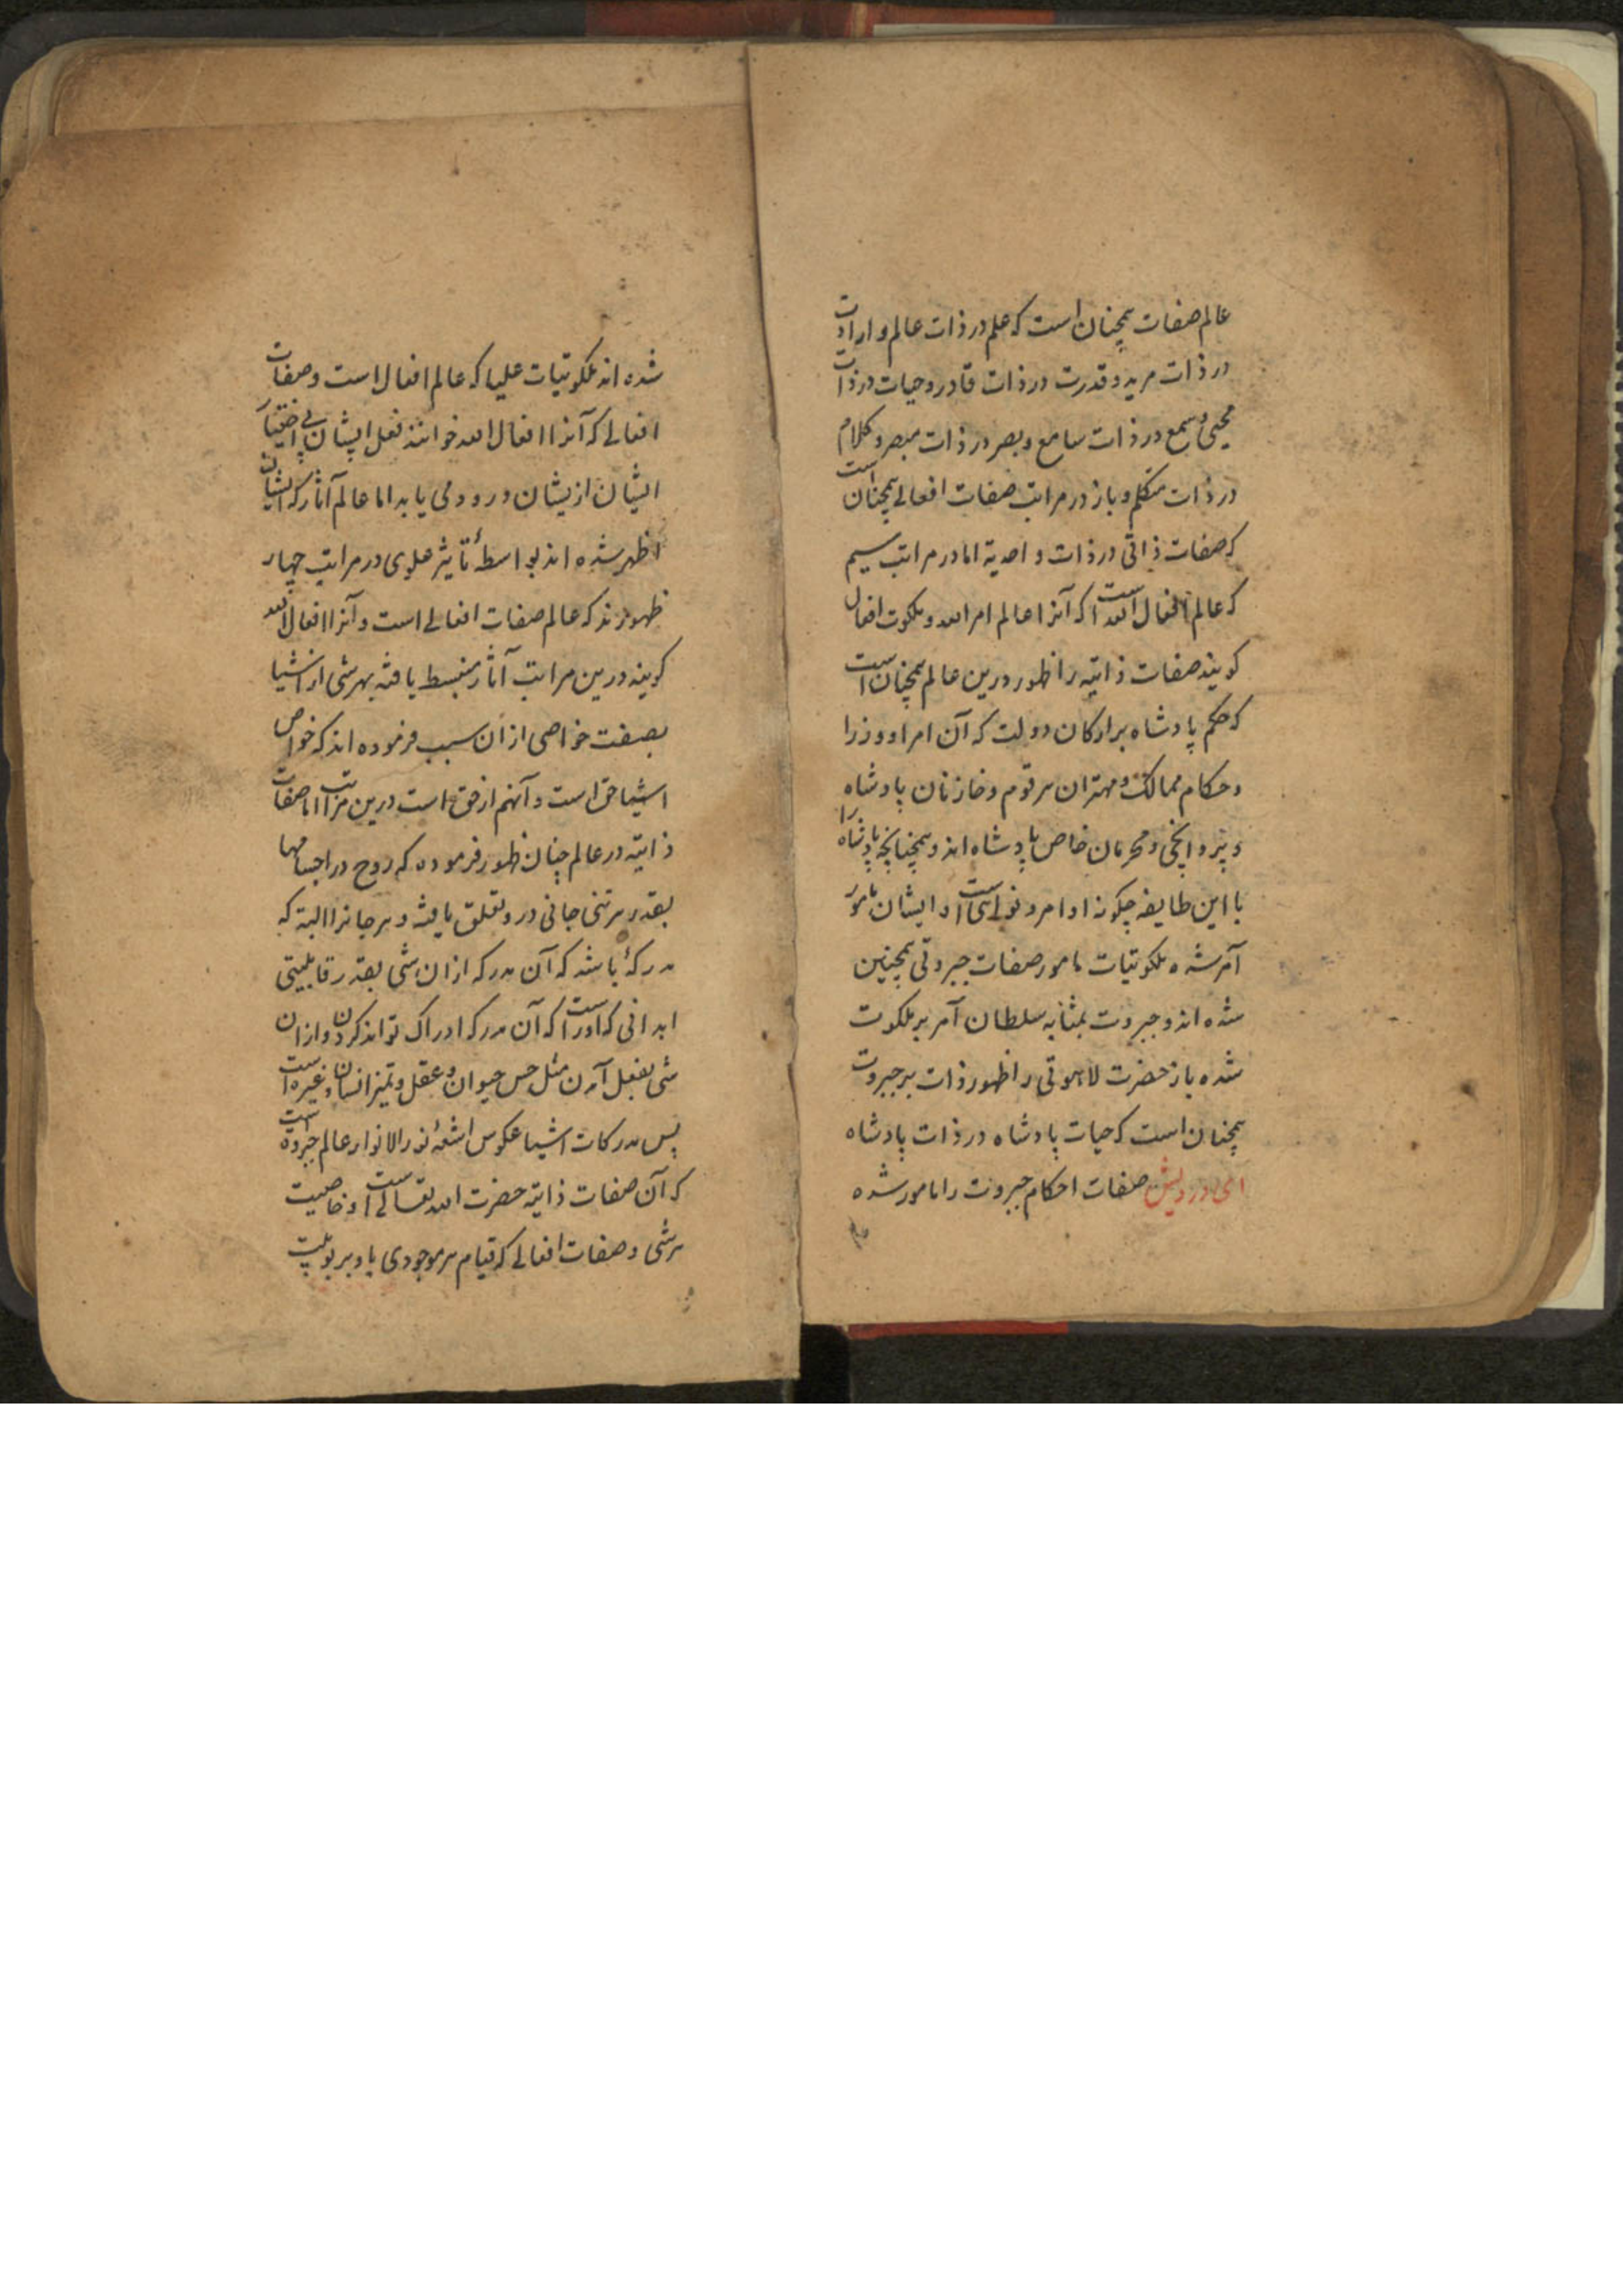 عالم صفات همچنان است که علم در ذات عالم و ارادت
در ذات مرید و قدرت در ذات قادر و حیات در ذات
محیی و سمع در ذات سامع و بصر در ذات مبصر و کلام
در ذات متکلم و باز در مراتب صفات افعالی همچنان است
که صفات ذاتی در ذات واحدیة اما در مراتب سیم
که عالم افعال الله است که آنرا عالم امر الله و ملکوت افعال
کویند صفات ذاتیه را ظهور درین عالم همچنان است
که حکم پادشاه بر ارکان دولت که آن امرا و وزرا
و حکام ممالک و مهتران هر قوم و خازنان پادشاه
و محرمان خاص پادشاه اند و همچنانچه پادشاه را
با این طایفه چکونه اوامر و نواهی است و ایشان مامور
آمر شده ملکوتیات مامور صفات جبروتی همچنین
شده اند و جبروت بمثابه سلطان آمر بر ملکوت
شده باز حضرت لاهوتی را ظهور ذات بر جبروت
همچنان است که حیات پادشاه در ذات پادشاه
ای درویش صفات احکام جبروت را مامور شده
شده اند ملکوتیات علیا که عالم افعال است و صفات
افعالی که آنرا افعال الله خوانند فعل ایشان بی اختیار
ایشان ازیشان ورود می یابد اما عالم آثار که ایشان
اظهر شده اند بواسطهٔ تأثیر علوی در مراتب چهار
ظهورند که عالم صفات افعالی است و آنرا افعال الله
کویند درین مراتب آثار منبسط یافته بهر شی از اشیا
بصفت خواصی از آن سبب فرموده اند که خواص
اشیا حق است و آنهم از حق است درین مراتب اما صفات
ذاتیه در عالم چنان ظهور فرموده که روح در اجسامها
بقدر هر تنی جانی درو تعلق یافته و هر جانرا البته که
مدرکهٔ باشد که آن مدرکه از ان شی بقدر قابلیتی
ابدانی که اوراست که آن مدرکه ادراک تواند کردن و از ان
شی بفعل آمدن مثل حس حیوان و عقل و تمیز انسان و غیره است
پس مدرکات اشیا عکوس اشعهٔ نور الانوار عالم جبروت است
که آن صفات ذاتیه حضرت الله تعالی است و خاصیت
هر شی و صفات افعالی که قیام هر موجودی باو